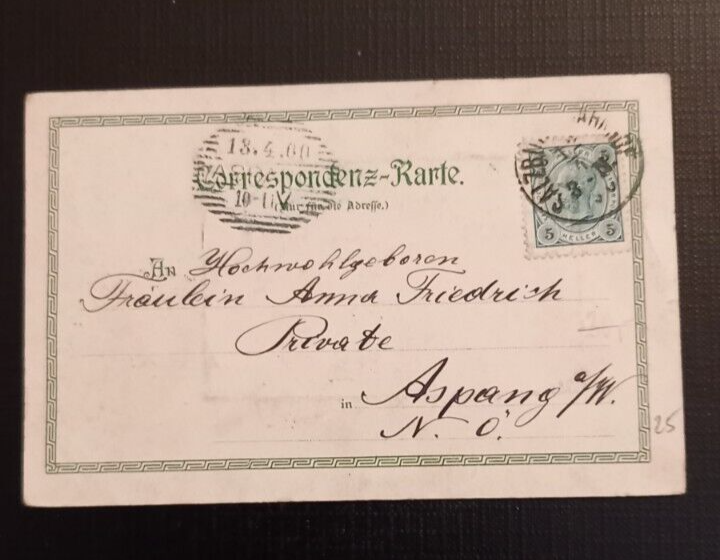 13.4.00
Correspondenz-Karte.
10-11V
(Nur für die Adresse.)
SALZBURG
5 HELLER 5
An Hochwohlgeboren
Fräulein Anna Friedrich
Private
in Aspang a/W.
N. Ö.
25